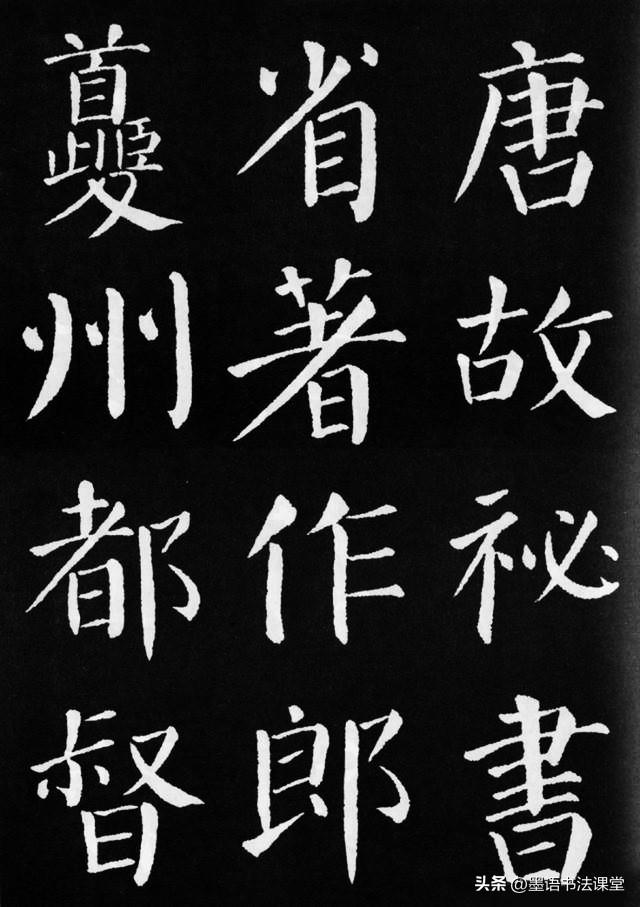 唐故祕書
省著作郎
夔州都督
头条 @墨语书法课堂